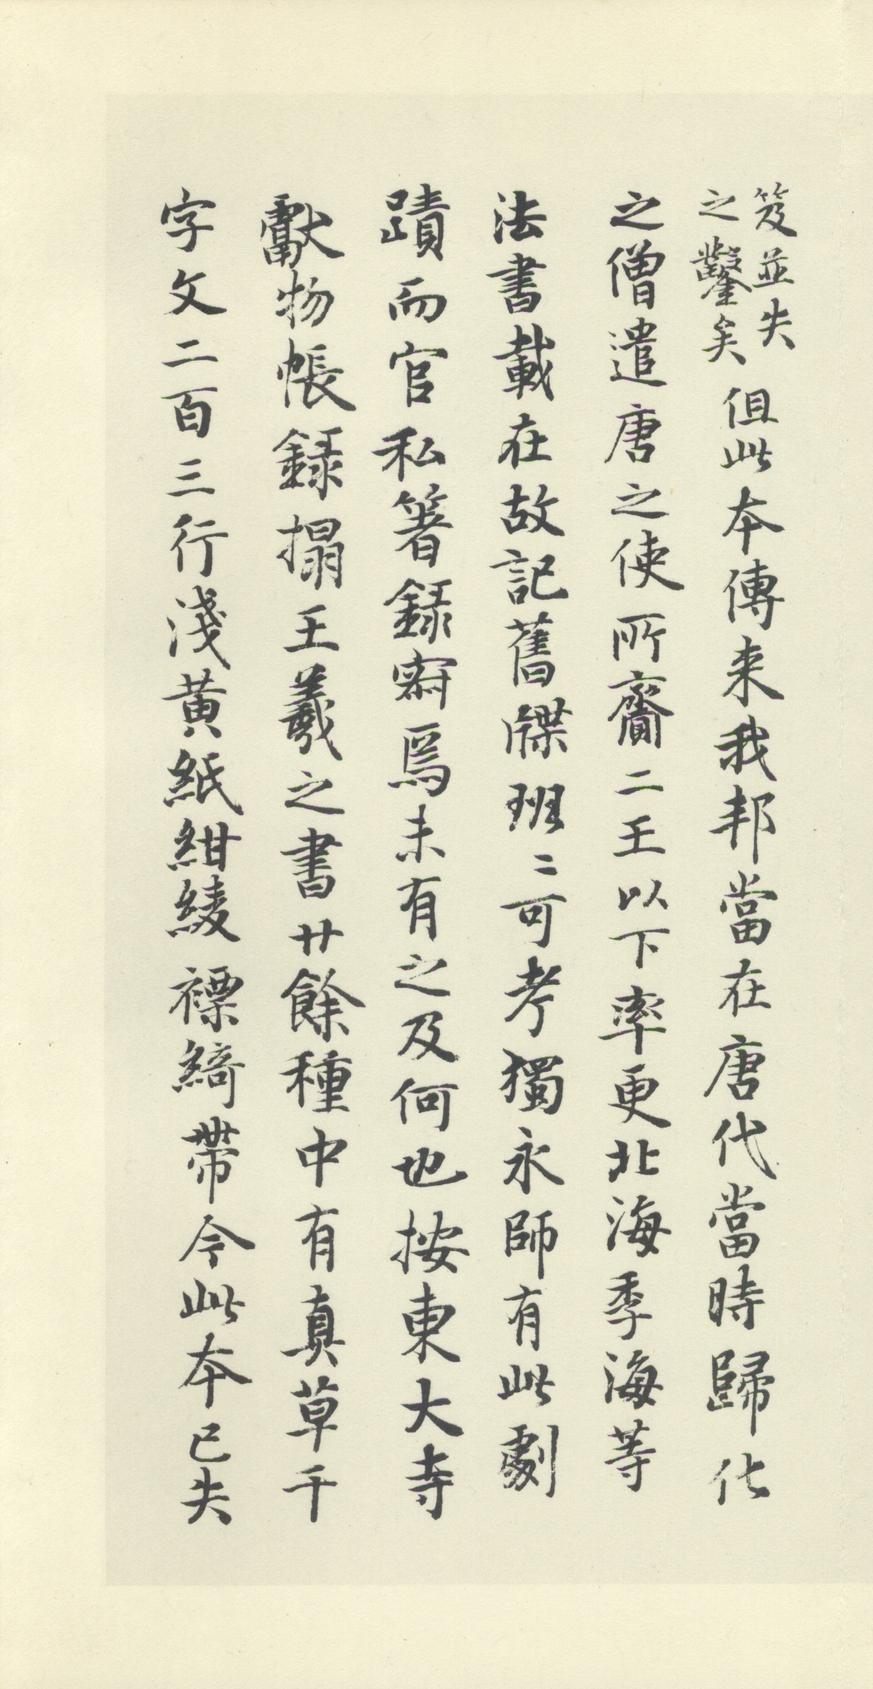 笈並失
之鑿矣
但此本傳来我邦當在唐代當時歸化
之僧遣唐之使所齎二王以下率更北海季海等
法書載在故記舊牒班〻可考獨永師有此劇
蹟而官私箸録窮焉未有之及何也按東大寺
獻物帳録搨王羲之書廿餘種中有真草千
字文二百三行淺黄紙紺綾褾綺帶今此本已失